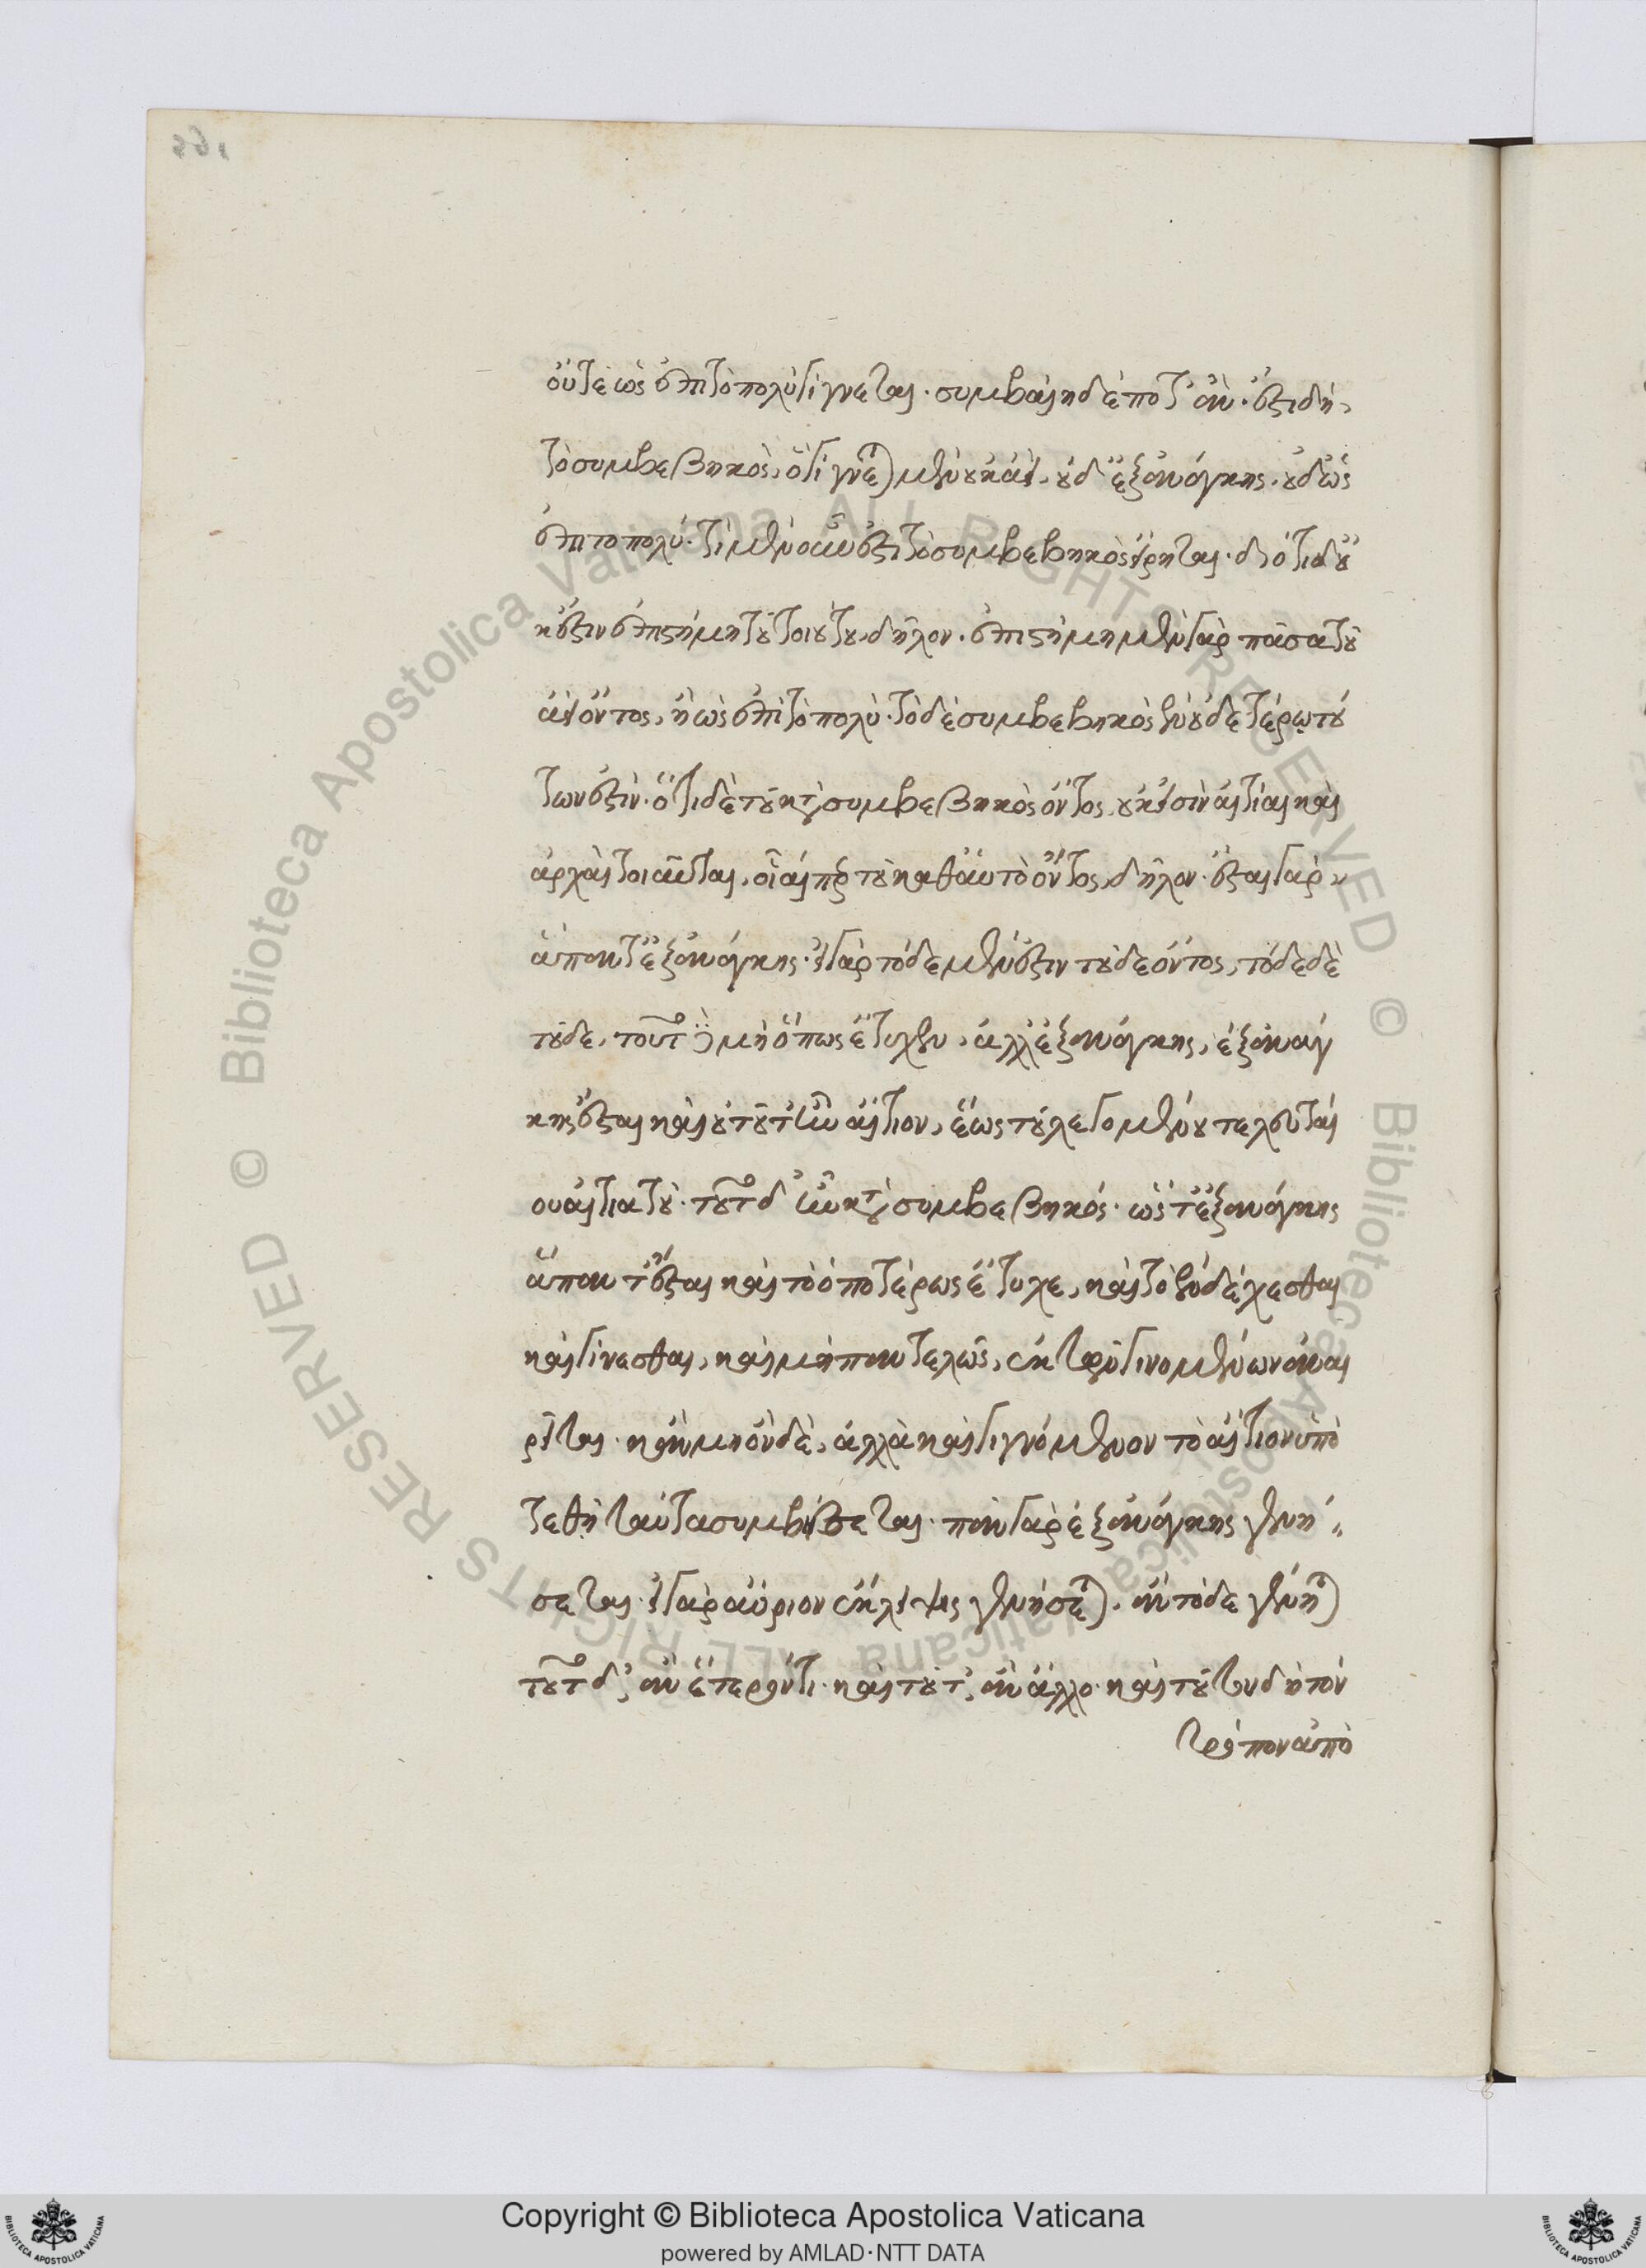 οὔτε ὡς ἐπιτοπολὺ γίγνεται· συμβαίη δέ ποτ' ἄν. ἔστι δὴ
τὸ συμβεβηκὸς, ὃ γίγνεται μὲν οὐκ ἀεὶ, οὐδ' ἐξ ἀνάγκης, οὐδ' ὡς
ἐπιτοπολύ. τί μὲν οὖν ἐστι τὸ συμβεβηκὸς εἴρηται. διότι δ' οὐ
κ ἔστιν ἐπιστήμη τοῦ τοιούτου, δῆλον. ἐπιστήμη μὲν γὰρ πᾶσα τοῦ
ἀεὶ ὄντος, ἢ ὡς ἐπὶ τὸ πολὺ. τὸ δὲ συμβεβηκὸς ἐν οὐδετέρῳ τού
των ἐστίν. ὅτι δὲ τοῦ κατὰ συμβεβηκὸς ὄντος, οὐκ εἰσὶν αἰτίαι καὶ
ἀρχαὶ τοιαῦται, οἷαίπερ τοῦ καθ' αὑτὸ ὄντος, δῆλον. ἔσται γὰρ
ἅπαντ' ἐξ ἀνάγκης. εἰ γὰρ τόδε μὲν ἔστιν τοῦδε ὄντος, τόδε δὲ
τοῦδε, τοῦτο δὲ μὴ ὅπως ἔτυχεν, ἀλλ' ἐξ ἀνάγκης, ἐξ ἀνάγ
κης ἔσται καὶ οὗ τοῦτ' ἦν αἴτιον, ἕως τοῦ λεγομένου τελευταί
ου αἰτιατοῦ. τοῦτο δ' ἦν κατὰ συμβεβηκός. ὥς τ' ἐξ ἀνάγκης
ἅπαντ' ἔσται καὶ τὸ ὁποτέρως ἔτυχε, καὶ τὸ ἐνδέχεσθαι
καὶ γίνεσθαι, καὶ μὴ παντελῶς, ἐκ τῶν γινομένων ἀναι
ρεῖται. κἂν μὴ ὂν δὲ, ἀλλὰ καὶ γιγνόμενον τὸ αἴτιον ὑπο
τεθῇ ταὐτὰ συμβήσεται. πᾶν γὰρ ἐξ ἀνάγκης γενή
σεται. εἰ γὰρ αὔριον ἔκλειψις γενήσεται, ἂν τόδε γένηται
τοῦτο δ' ἂν ἕτερόν τι. καὶ τοῦτ' ἂν ἄλλο. καὶ τοῦτον δὴ τὸν
τρόπον ἀπὸ